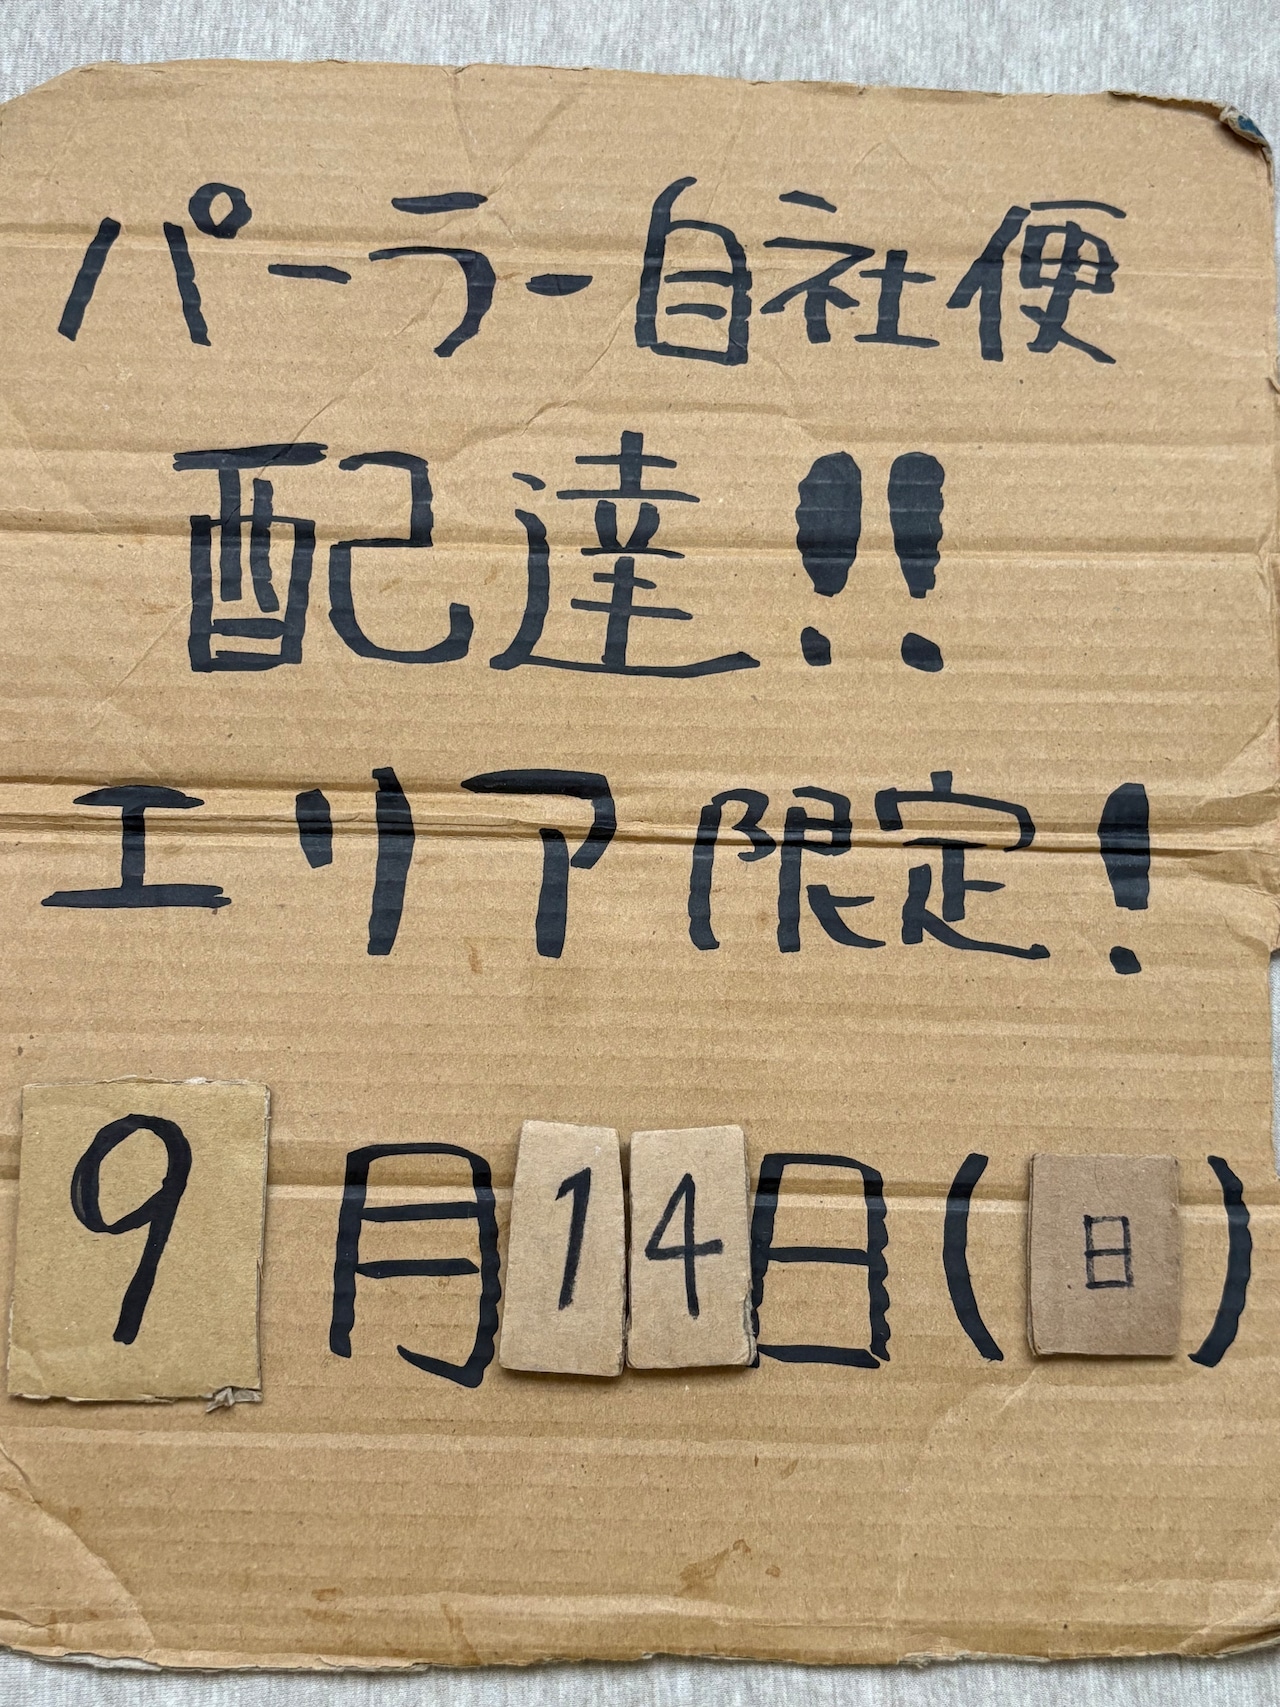 パーラー自社便
配達!!
エリア限定!
9月14日(日)